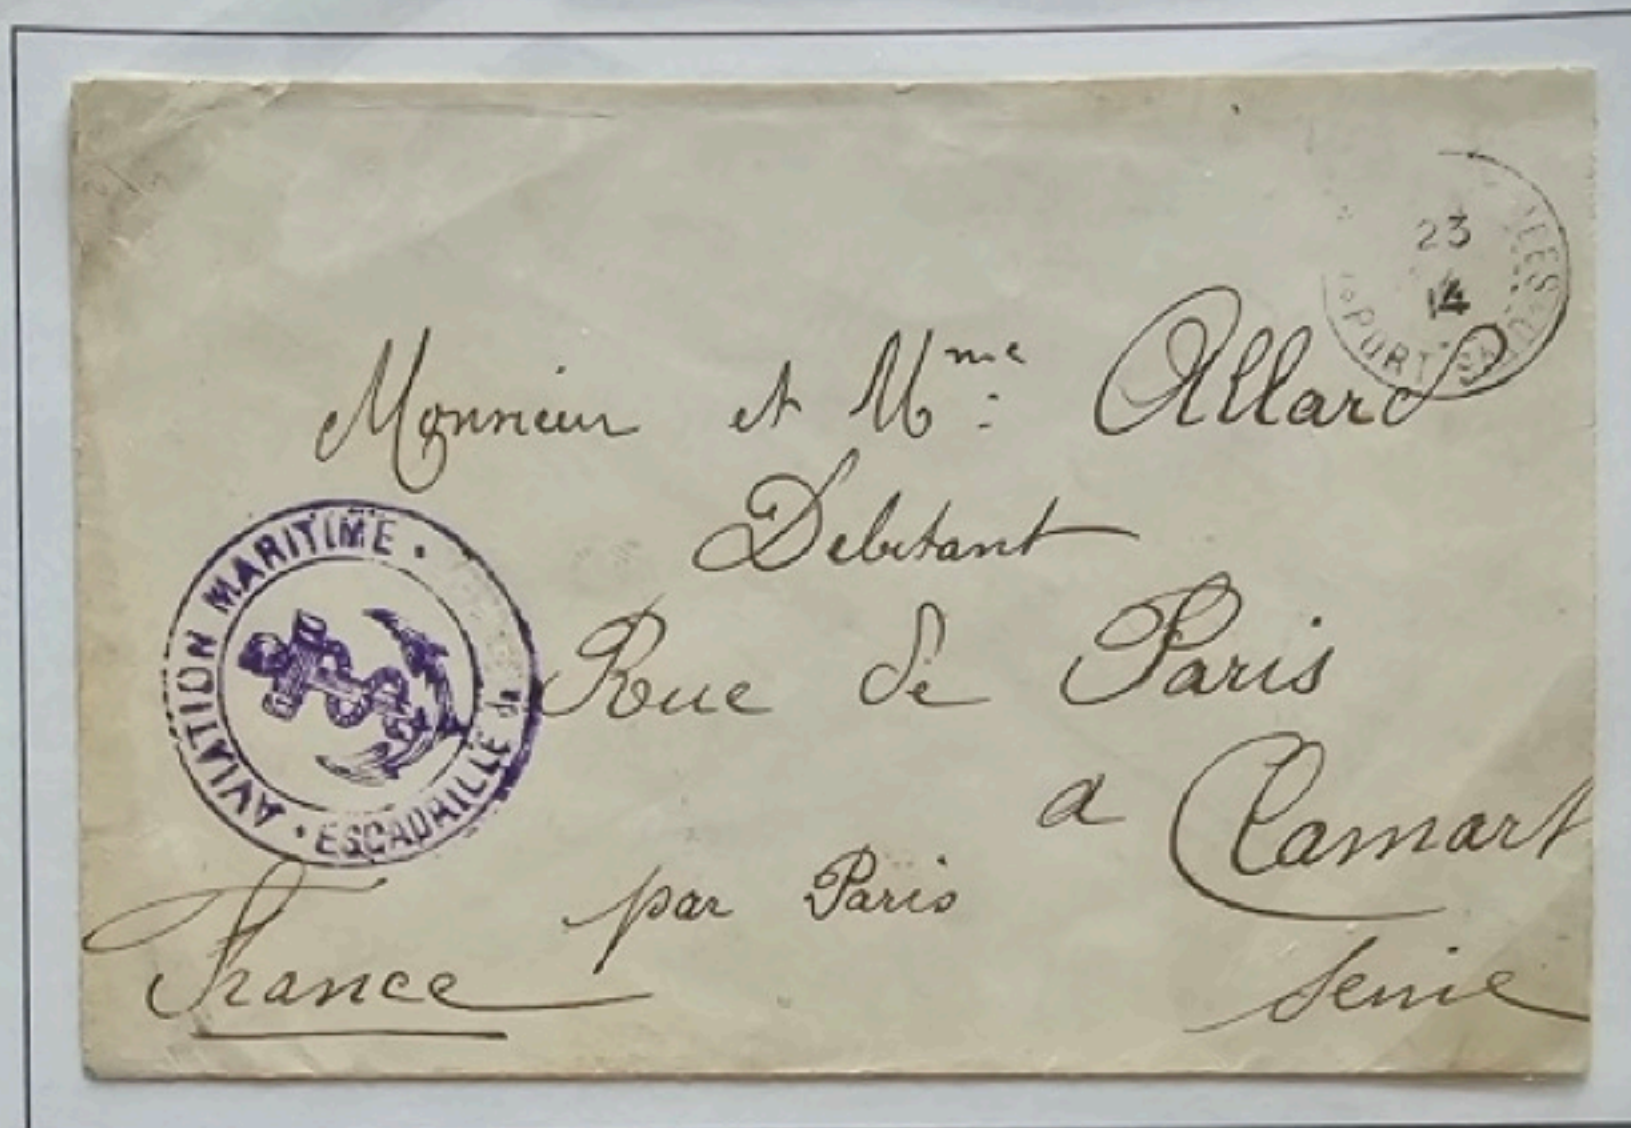 23
14
PORT SAID
Monsieur et Mme Allard
Debitant
Rue de Paris
a Clamart
par Paris
Seine
France
AVIATION MARITIME · ESCADRILLE de